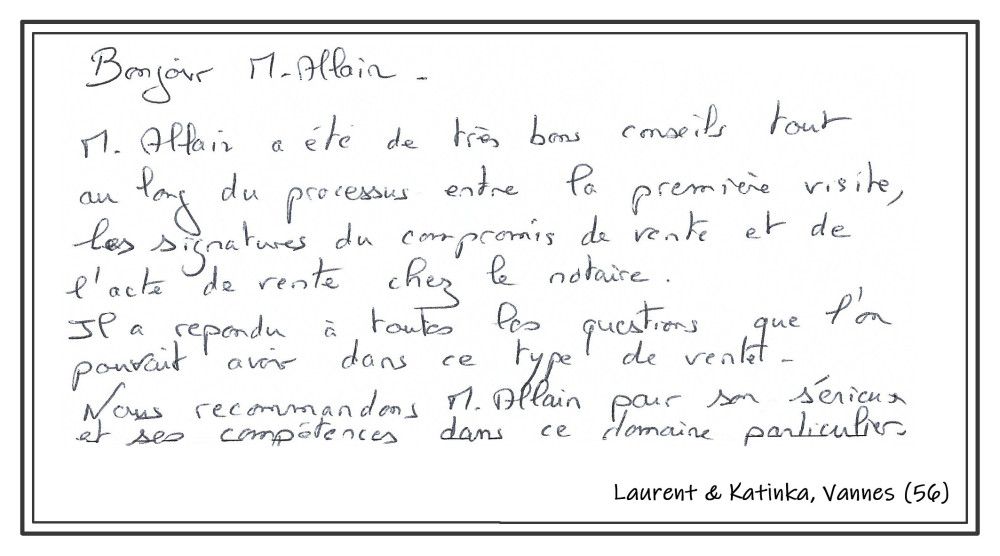 Bonjour M. Allain -
M. Allain a été de très bons conseils tout
au long du processus entre la première visite,
les signatures du compromis de vente et de
l'acte de vente chez le notaire.
Il a repondu à toutes les questions que l'on
pouvait avoir dans ce type de vente -
Nous recommandons M. Allain pour son sérieux
et ses compétences dans ce domaine particulier
Laurent & Katinka, Vannes (56)